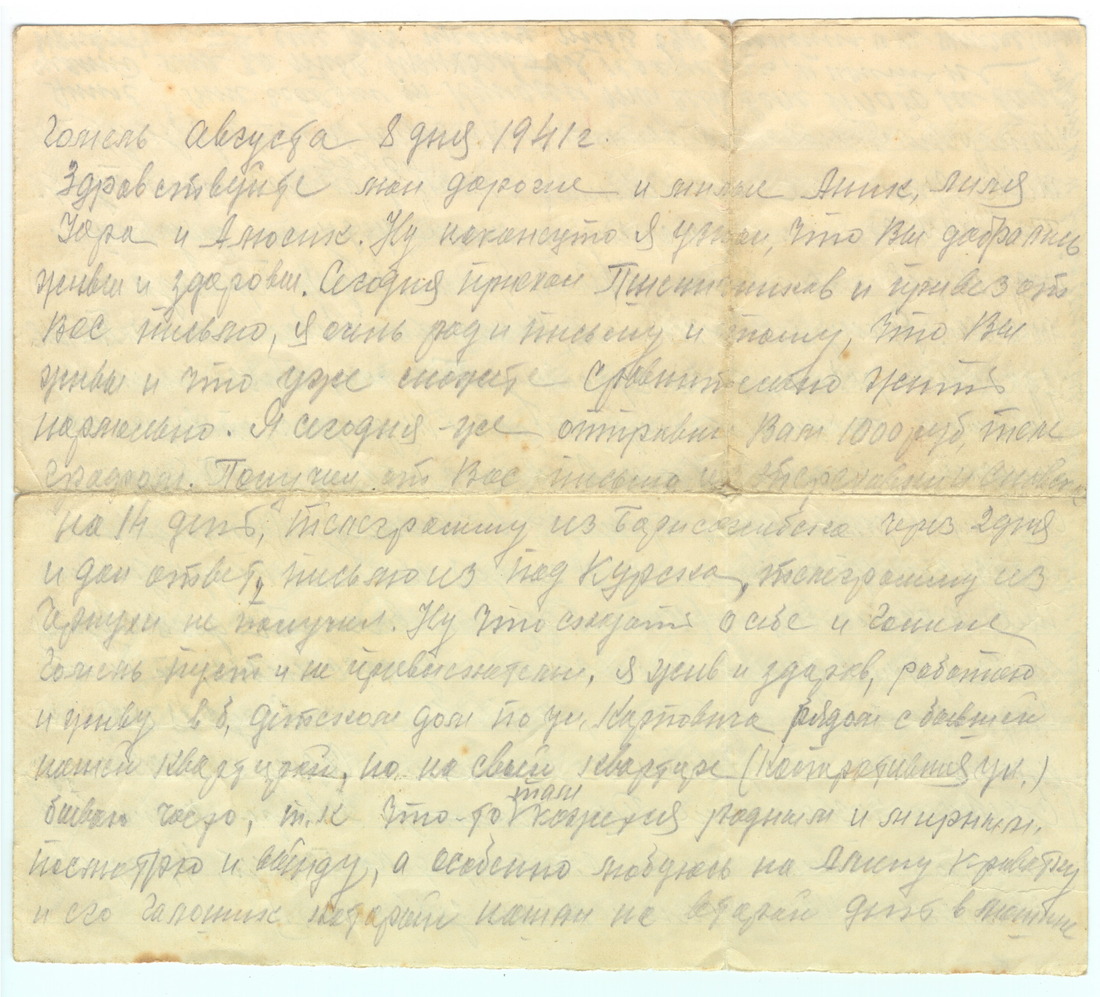 Гомель Августа 8 дня 1941 г.
Здравствуйте мои дорогие и милые Аник, Лиля
Юра и Алюсик. Ну наконецто я узнал, что Вы добрались
живы и здоровы. Сегодня приехал Пшеничников и привез от
Вас письмо, я очень рад и письму и тому, что Вы
живы и что уже сможете сравнительно жить
нормально. Я сегодня уже отправил Вам 1000 руб, теле
графом. Получил от Вас письмо из и
на 14 день, телеграмму из Борисоглебска через 2 дня
и дал ответ, письмо из под Курска, телеграмму из
не получил. Ну что сказать о себе и Гомеле
Гомель пуст и не привлекателен, я жив и здоров, работаю
и живу в б. детском дом по ул. Карповича рядом с бывшей
нашей квартирой, но на своей квартире ( ул.)
бываю часто, т.к что-то там кажется родным и мирным.
посмотрю и выйду, а особенно любуюсь на Алину кроватку
и его галошик который нашли на второй день в машине